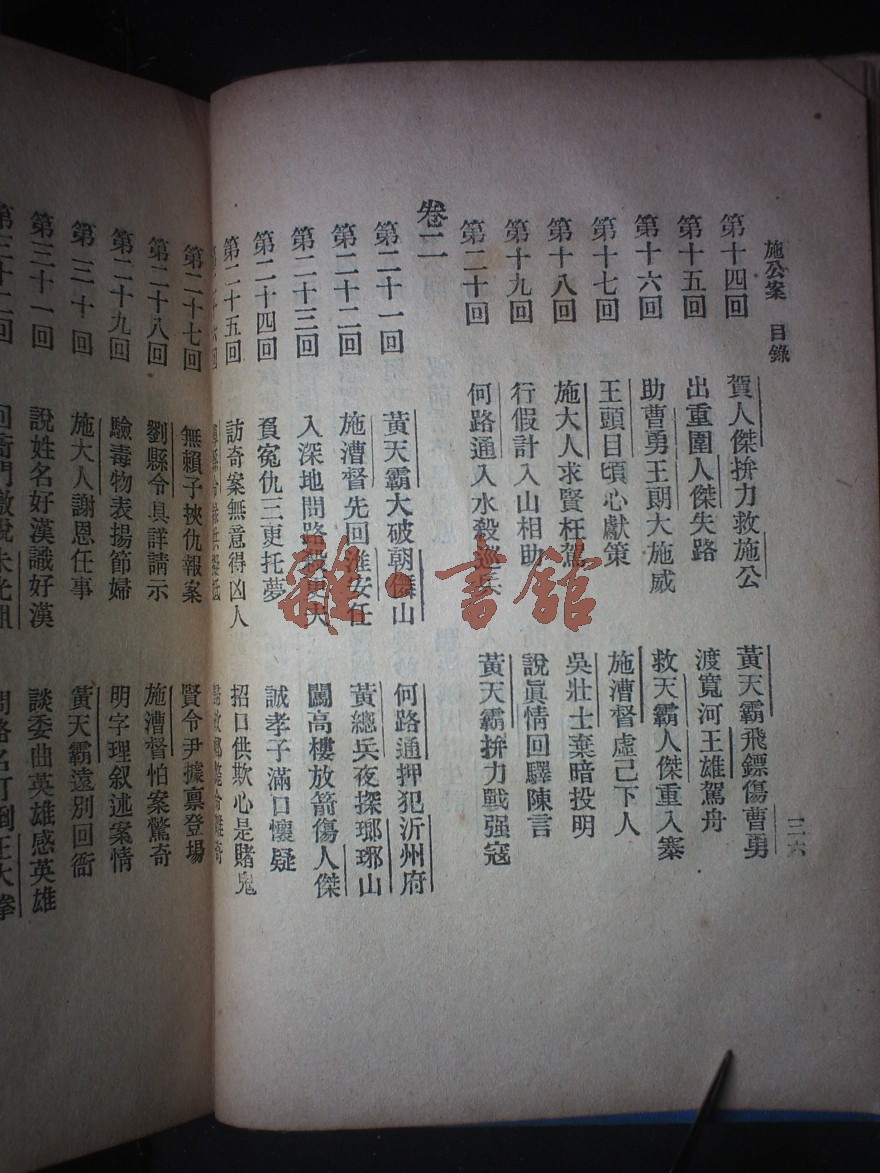 施公案 目錄 三六
第十四回 賀人傑拚力救施公 黃天霸飛鏢傷曹勇
第十五回 出重圍人傑失路 渡寬河王雄駕舟
第十六回 助曹勇王朗大施威 救天霸人傑重入寨
第十七回 王頭目頃心獻策 施漕督虛己下人
第十八回 施大人求賢枉駕 吳壯士棄暗投明
第十九回 行假計入山相助 說眞情回驛陳言
第二十回 何路通入水殺巡兵 黃天霸拚力戰强寇
卷二
第二十一回 黃天霸大破朝儛山 何路通押犯沂州府
第二十二回 施漕督先回淮安任 黃總兵夜探瑯琊山
第二十三回 入深地問路殺更夫 闖高樓放箭傷人傑
第二十四回 負冤仇三更托夢 誠孝子滿口懷疑
第二十五回 訪奇案無意得凶人 招口供欺心是賭鬼
第二十七回 無賴子挾仇報案 賢令尹據稟登場
第二十八回 劉縣令具詳請示 施漕督怕案驚奇
第二十九回 驗毒物表揚節婦 明字理叙述案情
第三十回 施大人謝恩任事 黃天霸遠別回衙
第三十一回 說姓名好漢識好漢 談委曲英雄感英雄
第三十二回
雜·書館